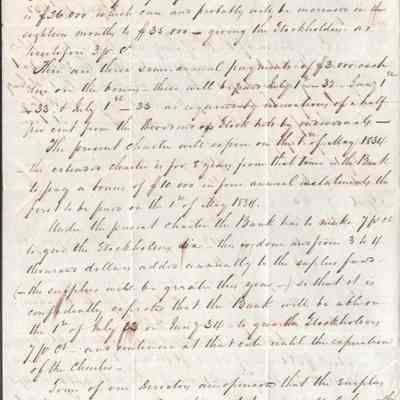 is $36.000 which can and probably will be increased in the
eighteen months to $35.000 — giving the Stockholders as
heretofore 3 p Ct
There are three semi-annual payments of $3.000 each
due on the bonus — these will be paid July 1st — 32 — Jany 1st
— 33 & July 1st — 33 as
per cent from the Dividends of Stock
The present charter will expire on the 1st of May 1834
the extension charter is for 8 years from that time — the Bank
to pay a bonus of $10.000 in four annual instalments the
first to be paid on the 1st of May 1834.
Under the present charter the Bank has to make 7 p Ct
to give the Stockholders six — this is done and from 3 to 4
thousand dollars added annually to the surplus fund —
(— the surplus will be greater this year —) so that it is
confidently expected that the Bank will be able on
the 1st of July 33 or Jany 34 — to give the Stockholders
7 p Ct — and continue at that rate until the expiration
of the Charter —
Some of our Directors are of opinion that the surplus